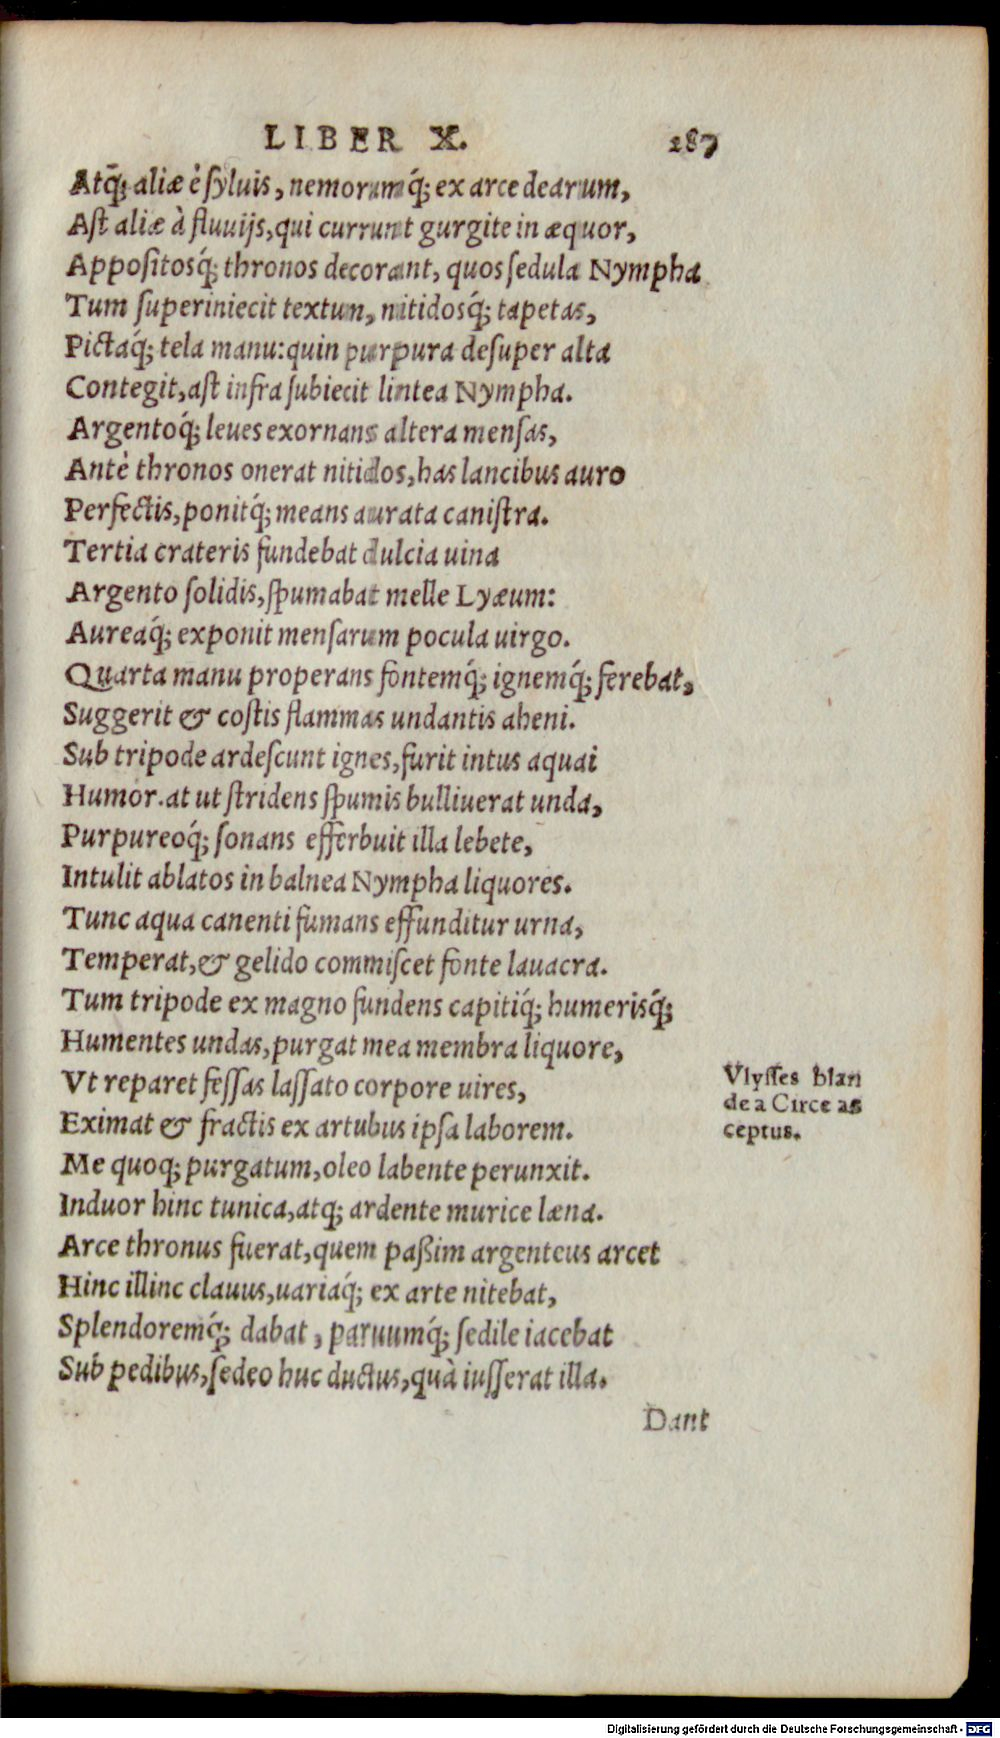 LIBER X. 287
Atq̃; aliæ è ſyluis, nemorumq́; ex arce dearum,
Aſt aliæ à fluuijs, qui currunt gurgite in æquor,
Appoſitosq́; thronos decorant, quos ſedula Nympha
Tum ſuperiniecit textum, nitidosq́; tapetas,
Pictaq́; tela manu: quin purpura deſuper alta
Contegit, aſt infra ſubiecit lintea Nympha.
Argentoq́; leues exornans altera menſas,
Antè thronos onerat nitidos, has lancibus auro
Perfectis, ponitq́; means aurata caniſtra.
Tertia crateris fundebat dulcia uina
Argento ſolidis, ſpumabat melle Lyæum:
Aureaq́; exponit menſarum pocula uirgo.
Quarta manu properans fontemq́; ignemq́; ferebat,
Suggerit & coſtis flammas undantis aheni.
Sub tripode ardeſcunt ignes, furit intus aquai
Humor. at ut ſtridens ſpumis bulliuerat unda,
Purpureoq́; ſonans efferbuit illa lebete,
Intulit ablatos in balnea Nympha liquores.
Tunc aqua canenti fumans effunditur urna,
Temperat, & gelido commiſcet fonte lauacra.
Tum tripode ex magno fundens capitiq́; humerisq́;
Humentes undas, purgat mea membra liquore,
Vt reparet feſſas laſſato corpore uires,
Eximat & fractis ex artubus ipſa laborem.
Me quoq; purgatum, oleo labente perunxit.
Induor hinc tunica, atq; ardente murice læna.
Arce thronus fuerat, quem paßim argenteus arcet
Hinc illinc clauus, uariaq́; ex arte nitebat,
Splendoremq́; dabat, paruumq́; ſedile iacebat
Sub pedibus, ſedeo huc ductus, quà iuſſerat illa.
Vlyſſes blan
de a Circe ac
ceptus.
Dant
Digitalisierung gefördert durch die Deutsche Forschungsgemeinschaft - DFG